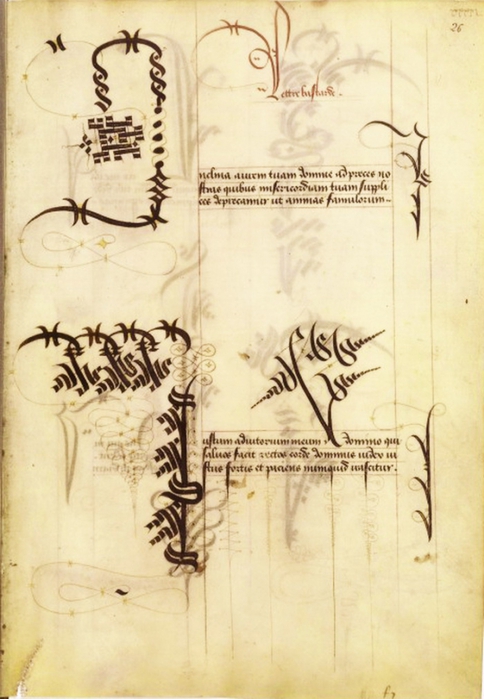 26
Lettre bastarde.
nclina aurem tuam domine ad preces no
stras quibus misericordiam tuam suppli
ces deprecamur ut animas famulorum
ustum adiutorium meum a domino qui
saluos facit rectos corde dominus iudex iu
stus fortis et paciens nunquid irascitur.